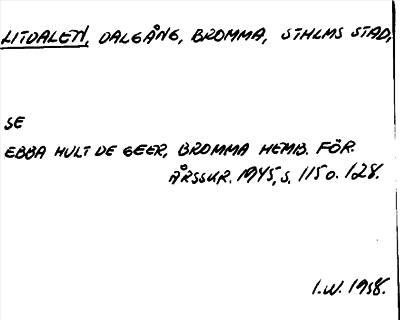 LITDALEN, DALGÅNG, BROMMA, STHLMS STAD,
SE
EBBA HULT DE GEER, BROMMA HEMB. FÖR.
ÅRSSKR. 1945, S. 115 O. 128.
I.W. 1958.